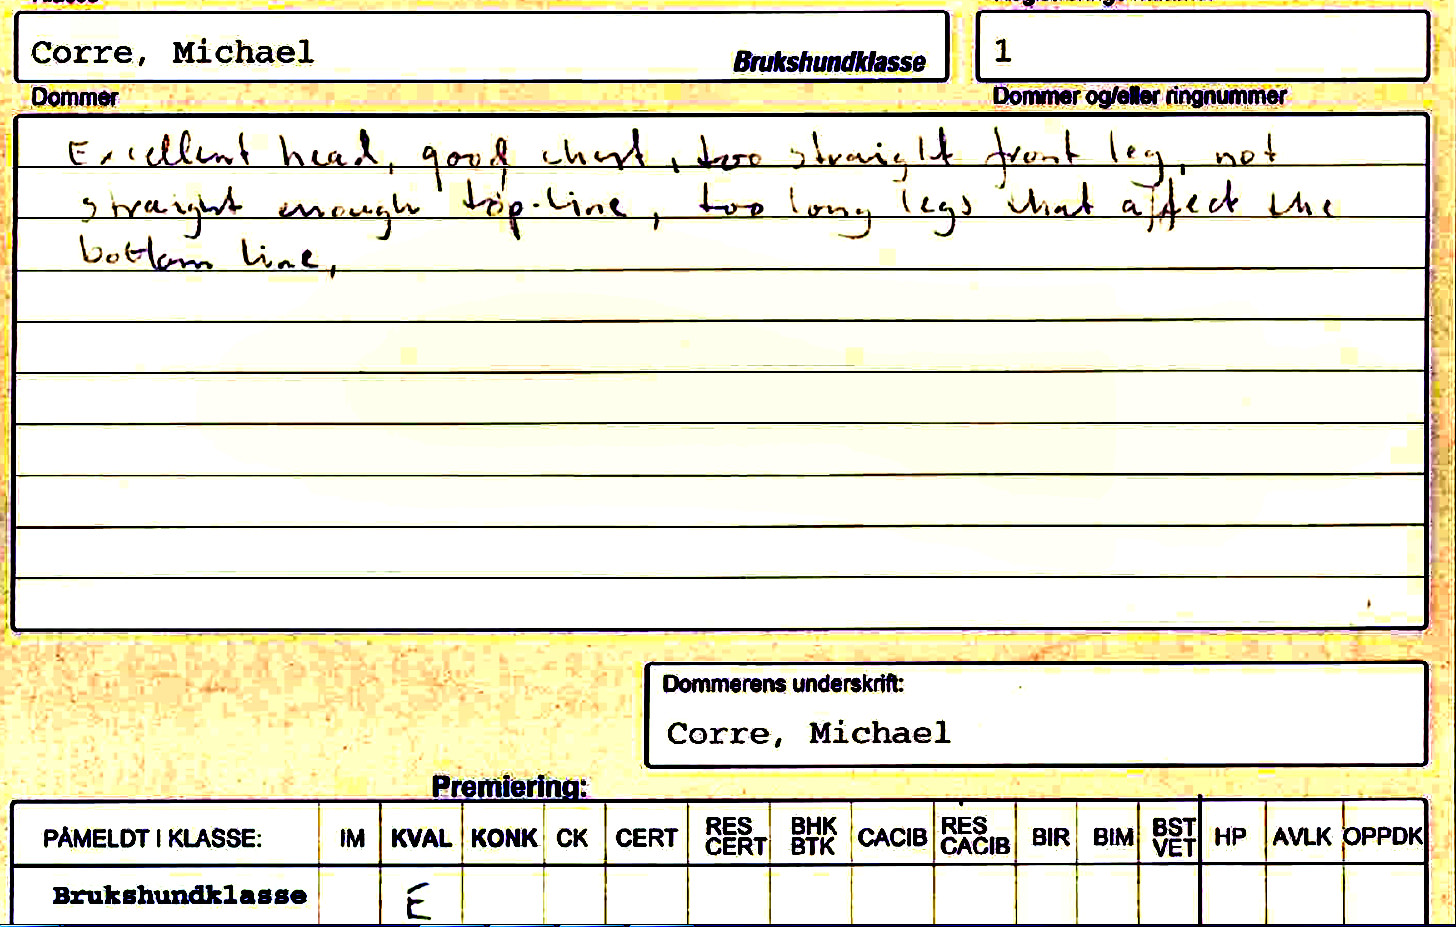 Corre, Michael Brukshundklasse 1
Dommer Dommer og/eller ringnummer
Excellent head, good chest, too straight front leg, not
straight enough top-line, too long legs that affect the
bottom line,
Dommerens underskrift:
Corre, Michael
Premiering:
PÅMELDT I KLASSE: IM KVAL KONK CK CERT RES CERT BHK BTK CACIB RES CACIB BIR BIM BST VET HP AVLK OPPDK
Brukshundklasse E